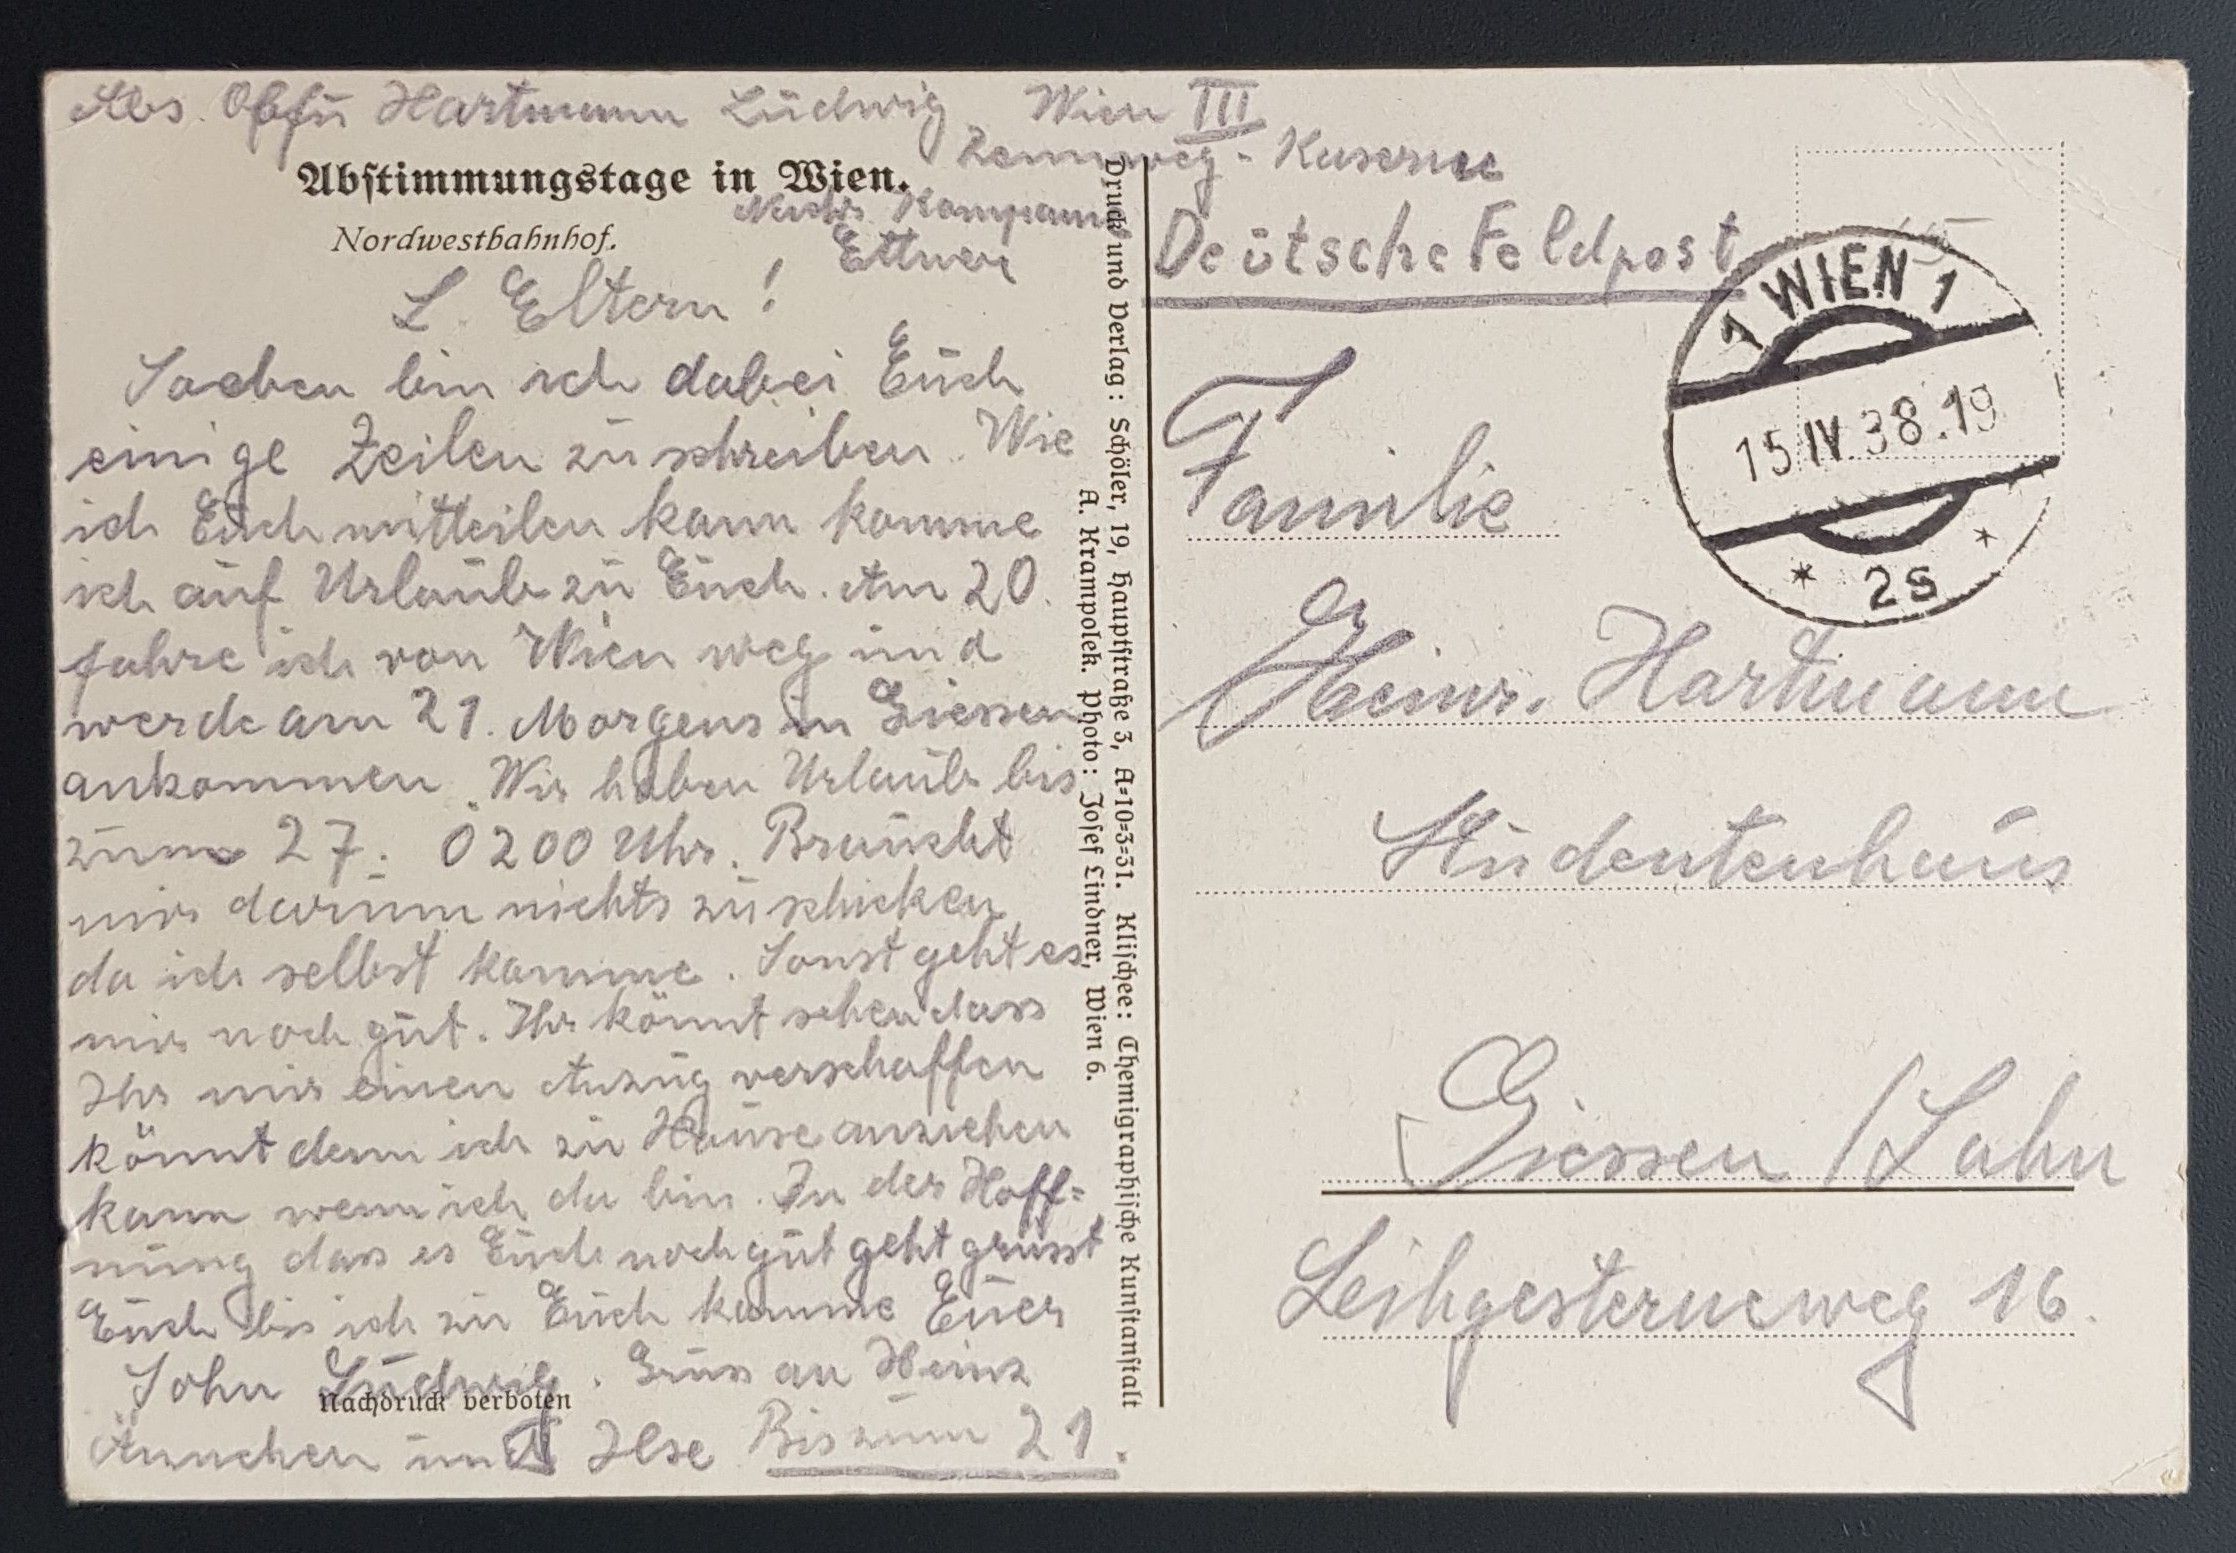 Abs. Obfu Hartmann Ludwig Wien III
Rennweg-Kaserne
Nachr. Kompanie
Ettner
Abstimmungstage in Wien.
Nordwestbahnhof.
L. Eltern!
Soeben bin ich dabei Euch
einige Zeilen zu schreiben. Wie
ich Euch mitteilen kann komme
ich auf Urlaub zu Euch. Am 20.
fahre ich von Wien weg und
werde am 21. Morgens in Giessen
ankommen. Wir haben Urlaub bis
zum 27. 0200 Uhr. Braucht
mir darum nichts zu schicken
da ich selbst komme. Sonst geht es
mir noch gut. Ihr könnt sehen dass
Ihr mir einen Anzug verschaffen
könnt denn ich zu Hause anziehen
kann wenn ich da bin. In der Hoff=
nung dass es Euch noch gut geht grüsst
Euch bis ich zu Euch komme Euer
Sohn Ludwig. Gruss an Heinz
Ännchen und Ilse Bis zum 21.
Nachdruck verboten
Druck und Verlag: Schöler, 19, Hauptstraße 3, A=10=3=31. Klischee: Chemigraphische Kunstanstalt
A. Krampolek. Photo: Josef Lindner, Wien 6.
Deutsche Feldpost
1 WIEN 1
15.IV.38.19
* 2s *
Familie
Heinr. Hartmann
Studentenhaus
Giessen/Lahn
Leihgesterneweg 16.